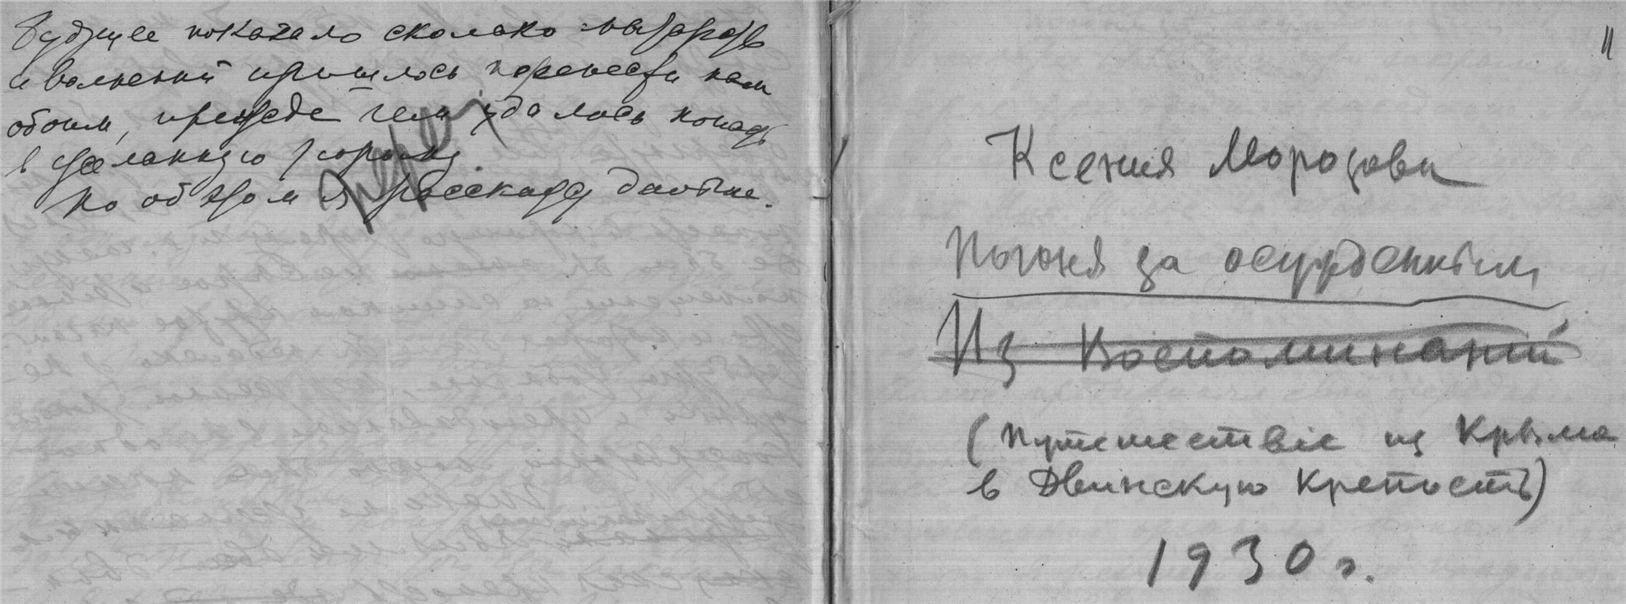 Будущее показало сколько мытарств
и волнений пришлось перенести нам
обоим, прежде чем удалось попасть
в желанную
Но об этом я расскажу дальше.
11
Ксения Морозова
Погоня за осужденным
Из Воспоминаний
(Путешествіе из Крыма
в Двинскую Крепость)
1930 г.